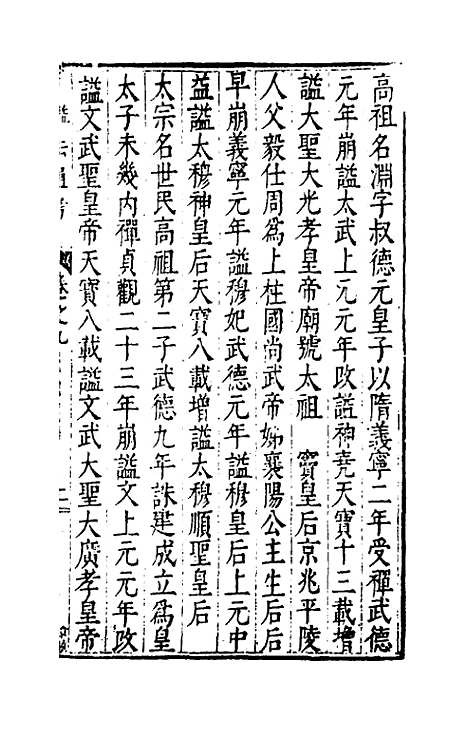 高祖名淵字叔德元皇子以隋義寧二年受禪武德
元年崩諡太武上元元年改諡神堯天寶十三載增
諡大聖大光孝皇帝廟號太祖　竇皇后京兆平陵
人父毅仕周為上柱國尚武帝姊襄陽公主生后后
早崩義寧元年諡穆妃武德元年諡穆皇后上元中
益諡太穆神皇后天寶八載增諡太穆順聖皇后
太宗名世民高祖第二子武德九年誅建成立為皇
太子未幾內禪貞觀二十三年崩諡文上元元年改
諡文武聖皇帝天寶八載諡文武大聖大廣孝皇帝
諡法通考 卷之九